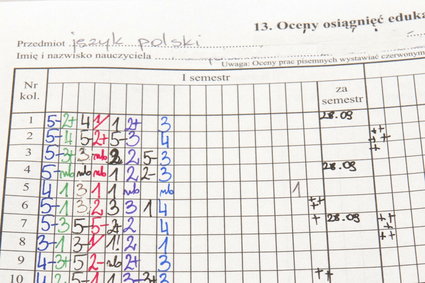 13. Oceny osiągnięć eduka
Przedmiot język polski
Imię i nazwisko nauczyciela
Uwaga: Oceny prac pisemnych wystawiać czerwonym
Nr kol. I semestr za semestr
1 5- 2+ 4 1 2+ 3 28.09
2 5- 4 5 2+ 5- 3 4
3 5- 3+ 3 nb 2 2 5- 3
4 5- nb nb nb 1 2 2- 3 28.09
5 4 1 3 1 1 nb nb 1
6 5- 1 3 2 3 3 1 4
7 5- 3- 5- 5- 2+ 2 4 28.09
8 3- 1 3 1 1! 2 1
9 4- 3+ 5 2- nb 2+ 4
10